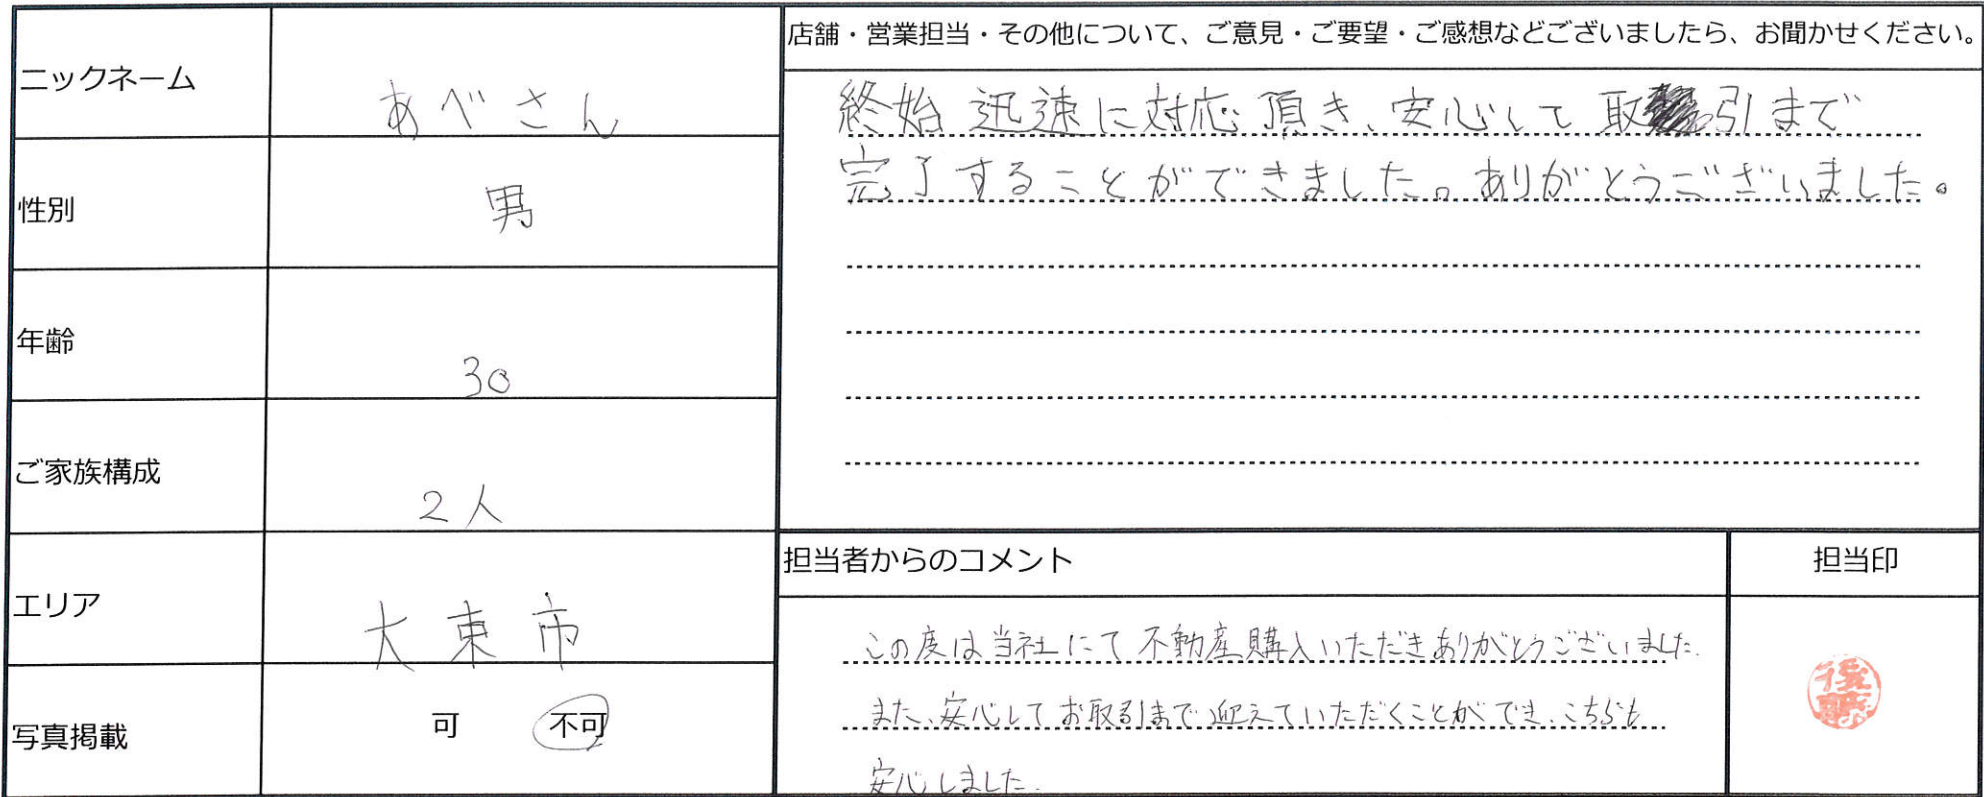 ニックネーム
あべさん
性別
男
年齢
30
ご家族構成
2人
エリア
大東市
写真掲載
可 不可
店舗・営業担当・その他について、ご意見・ご要望・ご感想などございましたら、お聞かせください。
終始迅速に対応頂き、安心して取引まで
完了することができました。ありがとうございました。
担当者からのコメント
この度は当社にて不動産購入いただきありがとうございました.
また、安心してお取引まで迎えていただくことができ、こちらも
安心しました.
担当印
後藤